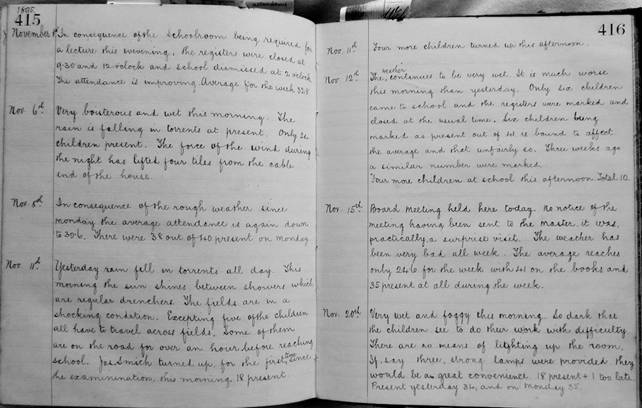 1895.
415
November 1st In consequence of the schoolroom being required for
a lecture this evening, the registers were closed at
9-30 and 12 o'clock and school dismissed at 2 o'clock
The attendance is improving. Average for the week 32.8
Nov. 6th Very boisterous and wet this morning. The
rain is falling in torrents at present. Only 22
children present. The force of the wind during
the night has lifted four tiles from the gable
end of the house.
Nov. 8th In consequence of the rough weather since
Monday the average attendance is again down
to 30.6. There were 38 out of 40 present on Monday
Nov. 11th Yesterday rain fell in torrents all day. This
morning the sun shines between showers which
are regular drenchers. The fields are in a
shocking condition. Excepting five of the children
all have to travel across fields. Some of them
are on the road for over an hour before reaching
school. Jas. Smith turned up for the first time since
the examination, this morning. 18 present
416
Nov. 11th Four more children turned up this afternoon.
Nov. 12th The weather continues to be very wet. It is much worse
this morning than yesterday. Only six children
came to school and the registers were marked and
closed at the usual time. Six children being
marked as present out of 41 is bound to affect
the average and that unfairly so. Three weeks ago
a similar number were marked.
Four more children at school this afternoon Total 10.
Nov. 15th Board Meeting held here today. No notice of the
meeting having been sent to the master it was,
practically, a surprise visit. The weather has
been very bad all week. The average reaches
only 24.6 for the week with 41 on the books and
35 present at all during the week.
Nov. 20th Very wet and foggy this morning. So dark that
the children see to do their work with difficulty
There are no means of lighting up the room.
If, say three, strong lamps were provided they
would be a great convenience 18 present + 1 too late
Present yesterday 34, and on Monday 35.